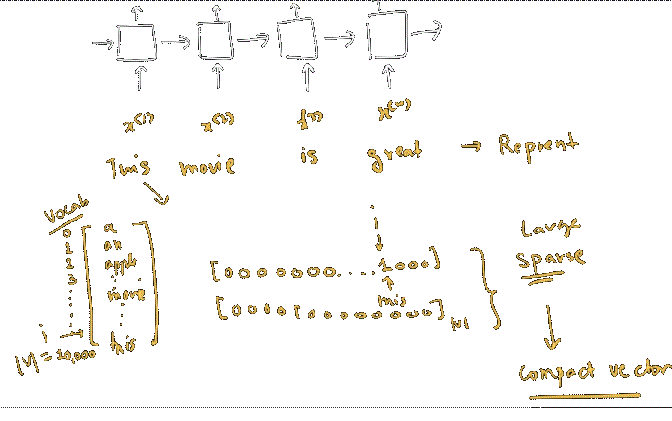 x⁽¹⁾ x⁽²⁾ x⁽ⁿ⁾
This movie is great → Reprent
Vocab
0 a
1 an
2 apple
3
movie
i → this
|V| = 10,000
i
[0000000....1000]
this
[0000100000000]|V|
Large
sparse
Compact vector